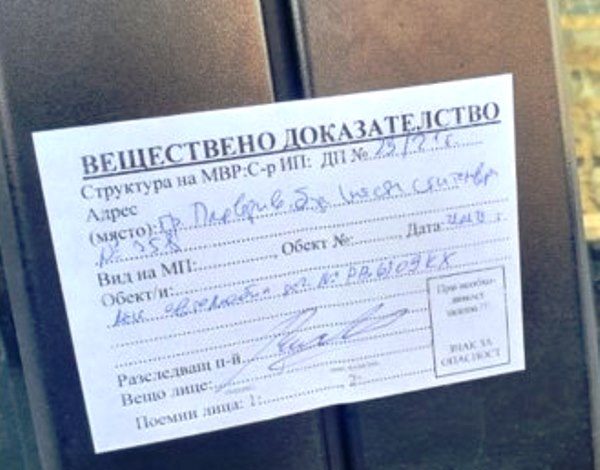 ВЕЩЕСТВЕНО ДОКАЗАТЕЛСТВО
Структура на МВР:С-р ИП: ДП №
Адрес
(място): гр Пловдив бул Шести Септември
№
Вид на МП: Обект №: Дата
Обект/и:
лек автомобил рег № РВ6109КХ
Разследващ п-й
Вещо лице:
Поемни лица: 1: 2:
При необхо-
димост
ЗНАК ЗА
ОПАСНОСТ